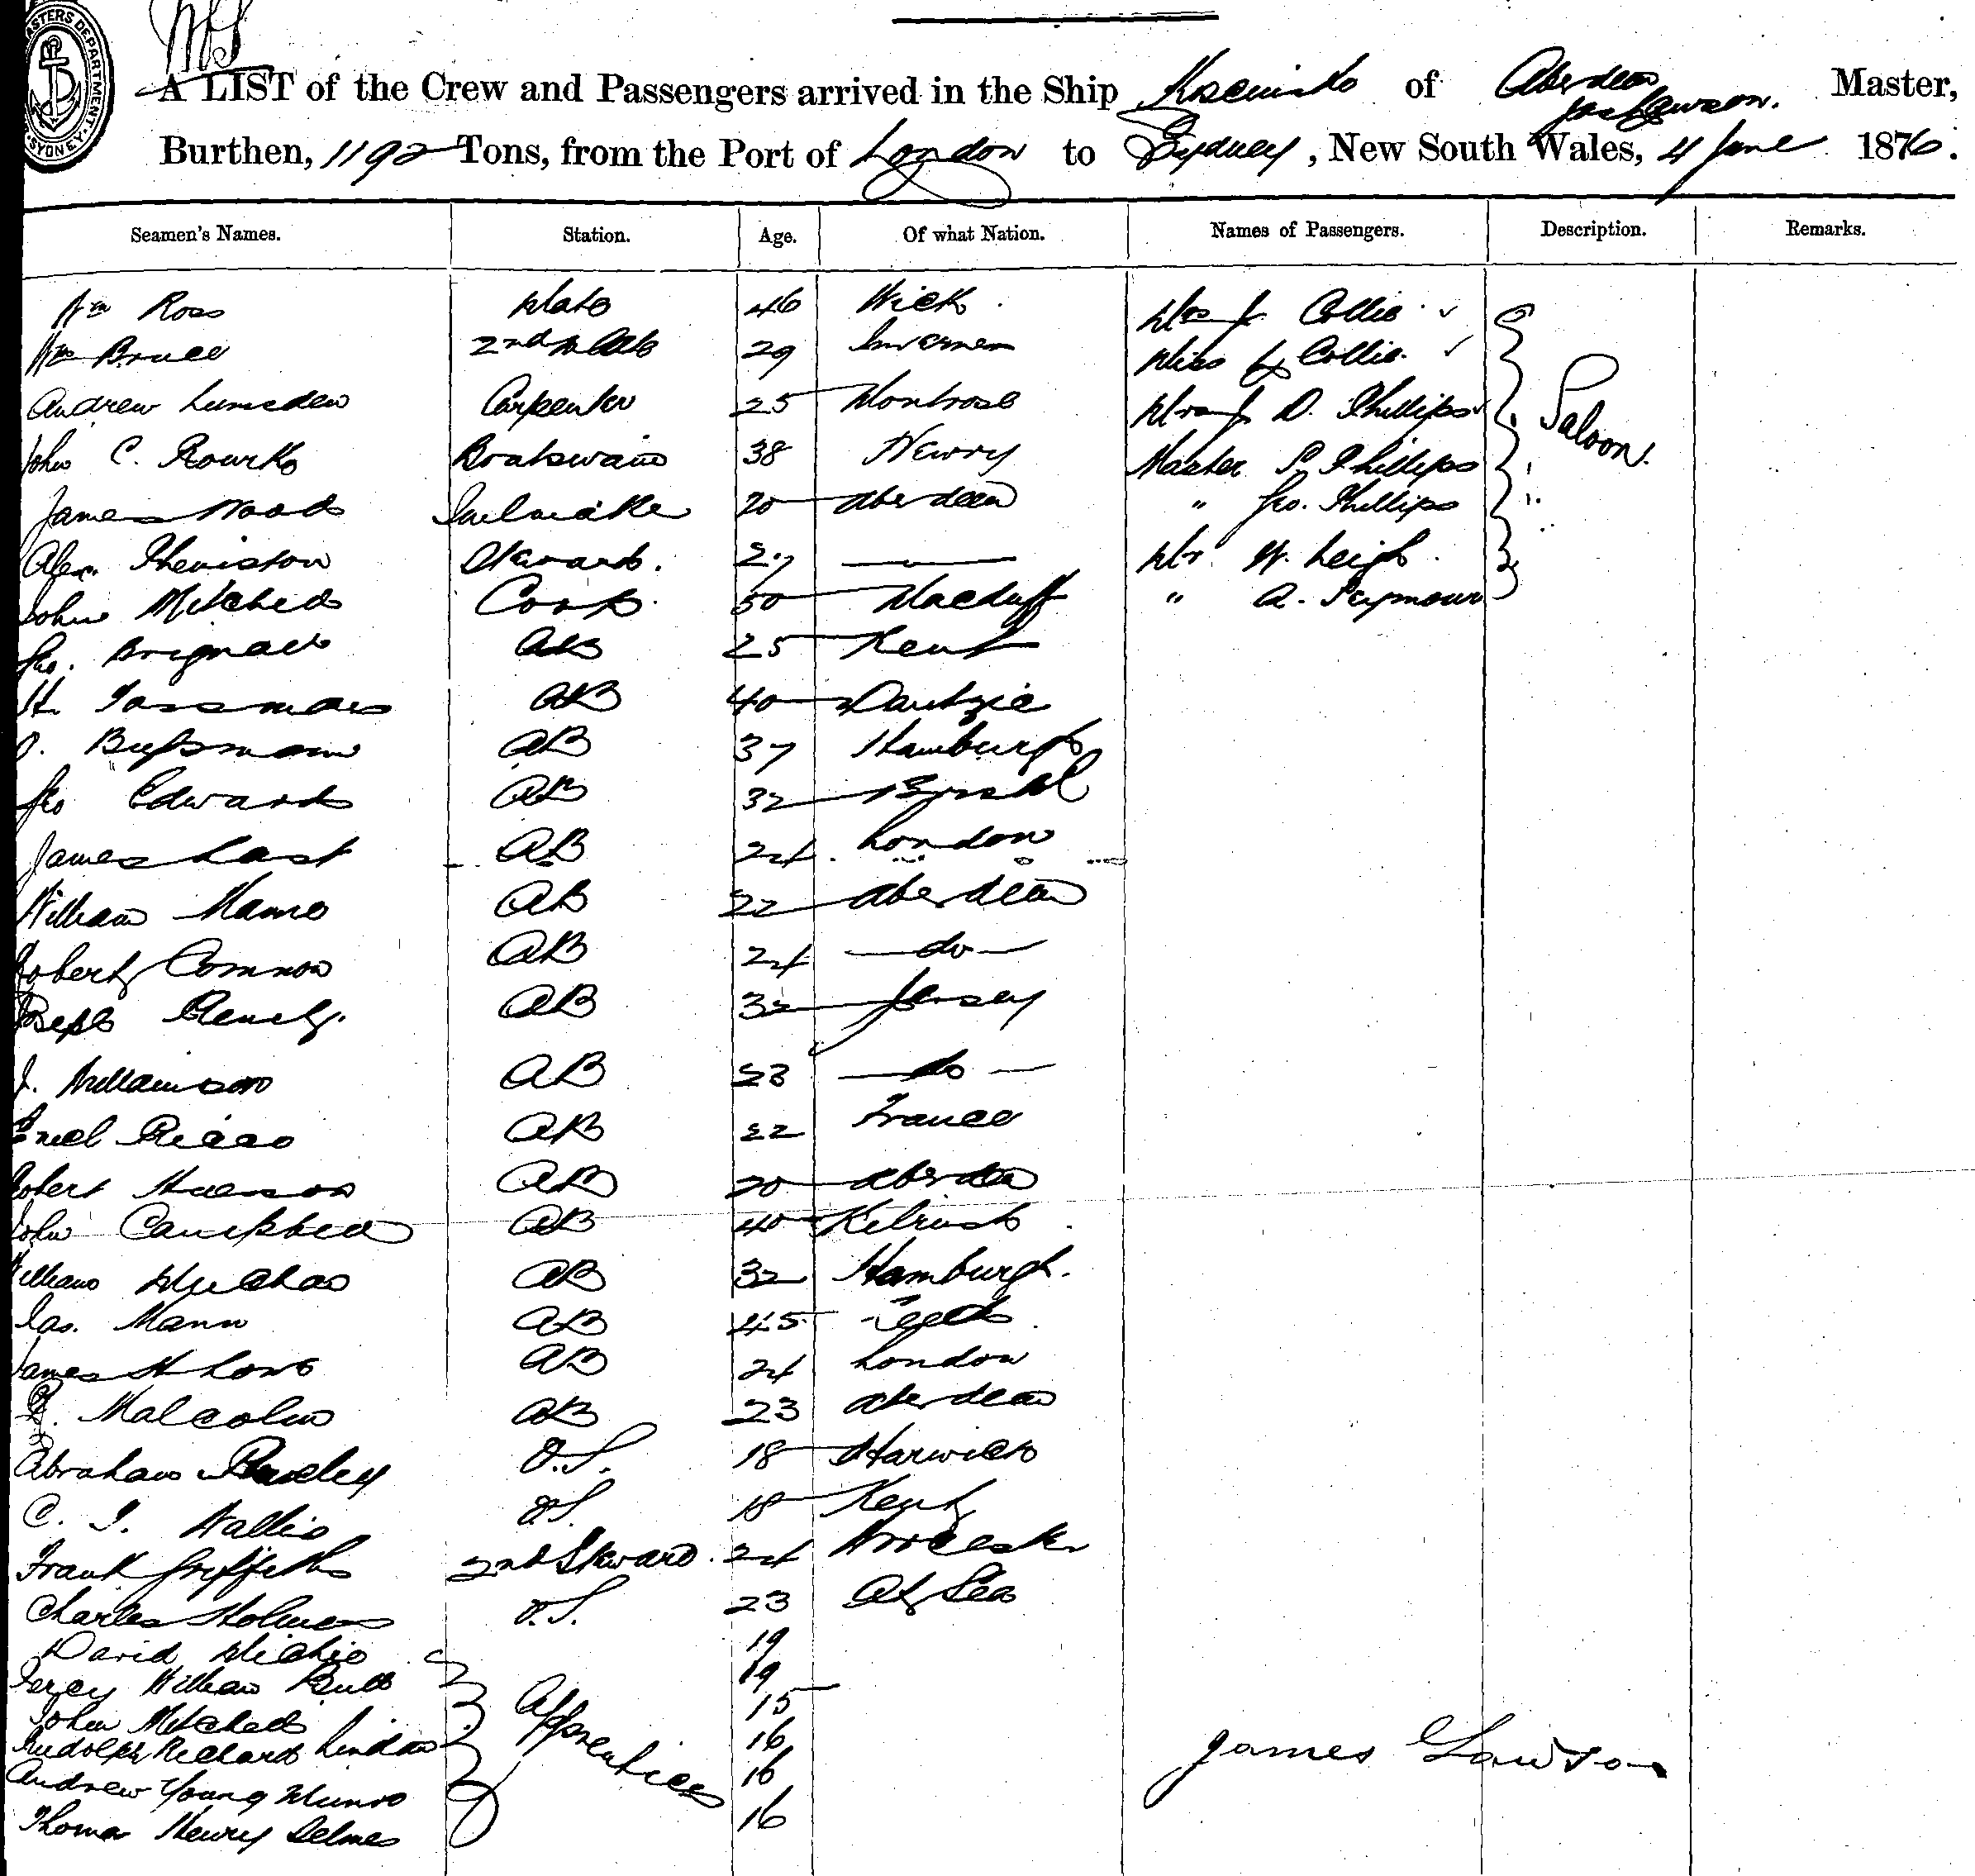 MASTERS DEPARTMENT SYDNEY
A LIST of the Crew and Passengers arrived in the Ship Kosciusko of Aberdeen Jas Lawson. Master,
Burthen, 1192 Tons, from the Port of London to Sydney, New South Wales, 4 June 1876.
Seamen's Names. Station. Age. Of what Nation. Names of Passengers. Description. Remarks.
Wm Ross Mate 46 Wick Mrs J. Collie Saloon.
Wm Bruce 2nd Mate 29 Inverness Miss Collie.
Andrew Lumsden Carpenter 25 Montrose D. Phillips
John C. Rourke Boatswain 38 Newry Master P. Phillips
James Wood Sailmaker 20 Aberdeen " Geo. Phillips
Alex. Steward. 27 — Mr W. Leigh
John Mitchell Cook 50 Macduff " A. Seymour
Geo. Brignall AB 25 Kent
H. AB 40 Dantzic
Bussmann AB 37 Hamburgh
Geo Edwards AB 32 Bristol
James Last AB 24 London
William AB 22 Aberdeen
Robert Common AB 24 — do —
Joseph AB 32 Jersey
J. Williamson AB 23 — do —
AB 22 France
Robert AB 20 Aberdeen
John Campbell AB 40 Kilrush
William AB 32 Hamburgh.
Jas. Mann AB 45 Leith
James H Low AB 24 London
Malcolm AB 23 Aberdeen
Abraham O.S. 18 Harwich
C. J. Wallis OS. 18 Kent
Frank Griffiths 2nd Steward 24 Worcester
Charles Holmes O.S. 23 At Sea
David Michie Apprentices 19
Percy William Bull 19
John Mitchell 15
Rudolph Richard 16
Andrew Young Munro 16
Thomas Henry Selmes 16
James Lawson